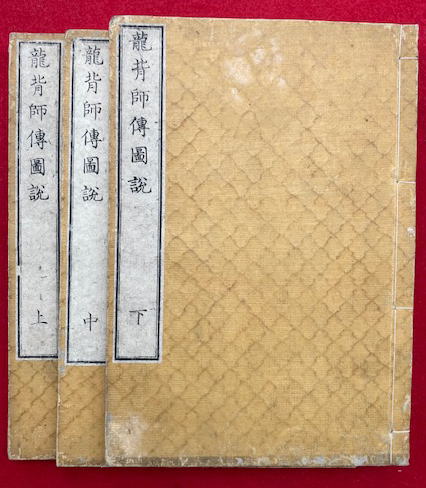 龍背師傳圖說 上
龍背師傳圖說 中
龍背師傳圖說 下